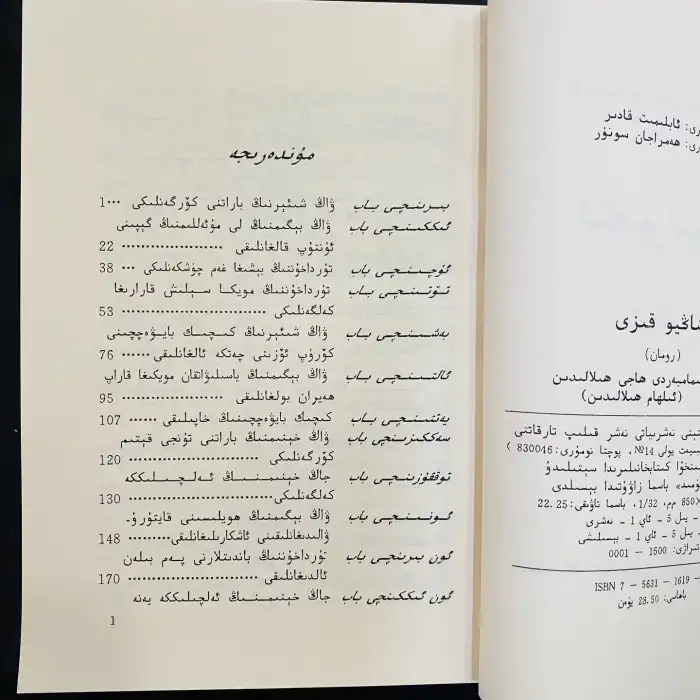 مۇندەرىجە
بىرىنچى باب ۋاڭ شىئېرنىڭ باراتنى كۆرگەنلىكى ···1
ئىككىنچى باب ۋاڭ بېگىمنىڭ لى مۇئەللىمنىڭ گېپىنى
ئۇنتۇپ قالغانلىقى ····················· 22
ئۈچىنچى باب تۇرداخۇننىڭ بېشىغا غەم چۈشكەنلىكى ··· 38
تۆتىنچى باب تۇرداخۇننىڭ مويكا سېلىش قارارىغا
كەلگەنلىكى ····························· 53
بەشىنچى باب ۋاڭ شىئېرنىڭ كىچىك بايۋەچچىنى
كۆرۈپ ئۆزىنى چەتكە ئالغانلىقى······ 76
ئالتىنچى باب ۋاڭ بېگىمنىڭ ياسىلىۋاتقان مويكىغا قاراپ
ھەيران بولغانلىقى ···················· 95
يەتتىنچى باب كىچىك بايۋەچچىنىڭ خاپىلىقى ······ 107
سەككىزىنچى باب ۋاڭ خېنىمنىڭ باراتنى تۇنجى قېتىم
كۆرگەنلىكى ····························· 120
توققۇزىنچى باب جاڭ خېنىمنىڭ ئەلچىلىككە
كەلگەنلىكى····························· 130
ئونىنچى باب ۋاڭ بېگىمنىڭ ھويلىسىنى قايتۇرۇ-
ۋالىدىغانلىقىنى ئاشكارىلىغانلىقى ···· 148
ئون بىرىنچى باب تۇرداخۇننىڭ باندىتلارنى پەم بىلەن
ئالدىغانلىقى ··························· 170
ئون ئىككىنچى باب جاڭ خېنىمنىڭ ئەلچىلىككە يەنە
1
رى: ئابلىمىت قادىر
رى: ھەمراجان سونۇر
قىزى
(رومان)
ھاجى ھىلالىدىن
(ئىلھام ھىلالىدىن)
نەشرىياتى نەشر قىلىپ تارقاتتى
يولى 14№، پوچتا نومۇرى: 830046 )
كىتابخانىلىرىدا سېتىلىدۇ
باسما زاۋۇتىدا بېسىلدى
850 مم، 1/32، باسما تاۋىقى: 22.25
يىل 5 - ئاي 1 - نەشرى
يىل 5 - ئاي 1 - بېسىلىشى
تىراژى: 1500 - 0001
ISBN 7 - 5631 - 1619 -
باھاسى: 28.50 يۈەن